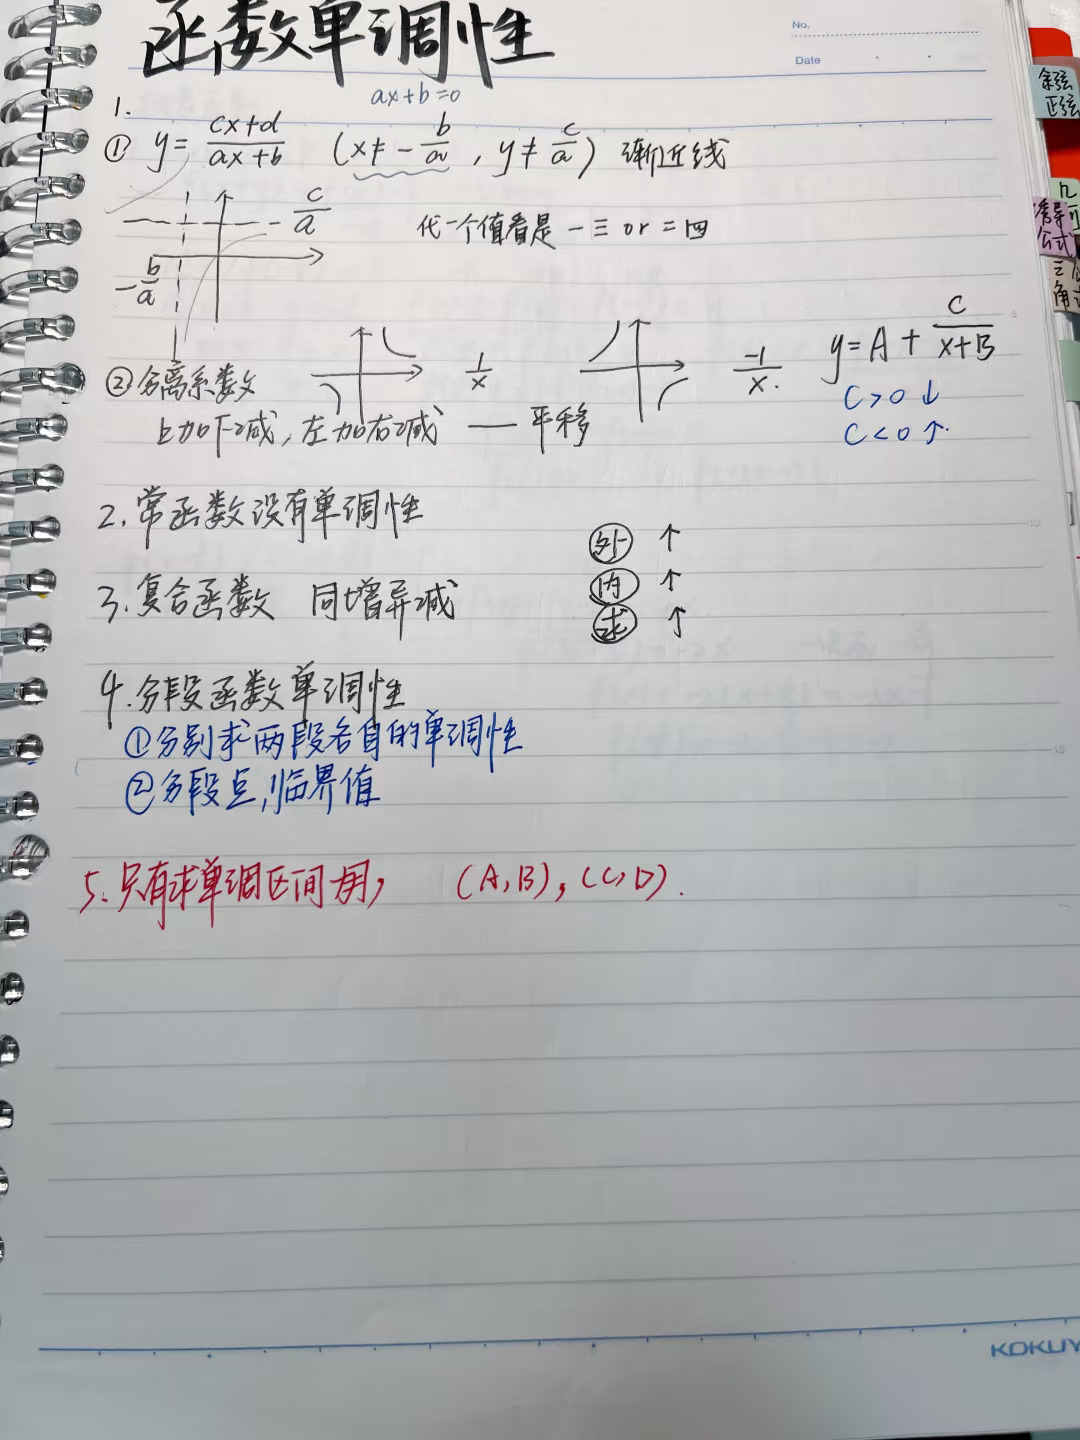 函数单调性
No.
Date
ax+b=0
1.
① y= (cx+d)/(ax+b) (x≠-b/a, y≠c/a) 渐近线
c/a
代一个值看是一三 or 二四
-b/a
②分离系数
1/x
-1/x.
y=A+c/(x+B)
C>0↓
C<0↑.
上加下减,左加右减 —— 平移
2.常函数没有单调性
外 ↑
3.复合函数 同增异减
内 ↑
求 ↑
4.分段函数单调性
①分别求两段各自的单调性
②分段点,临界值
5.只有求单调区间用, (A,B),(C,D).
余弦
正弦
诱导
公式
三角
KOKUY